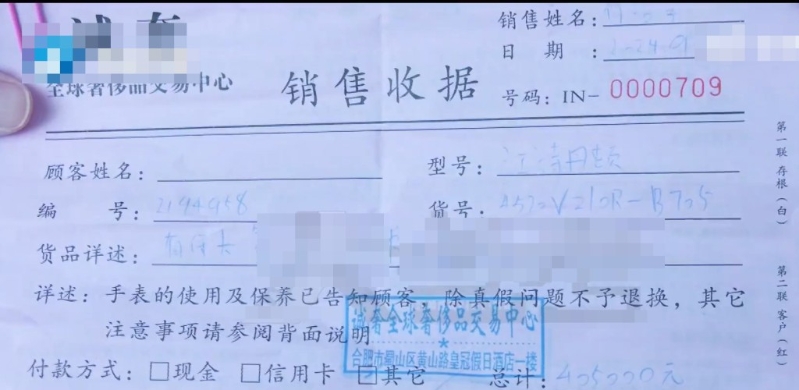 销售姓名:
日 期: 2024.
全球奢侈品交易中心
销售收据
号码: IN- 0000709
顾客姓名:
型号: 江诗丹顿
编 号: 2194958
货号: 4520V/210R-B705
货品详述:
详述: 手表的使用及保养已告知顾客, 除真假问题不予退换, 其它
注意事项请参阅背面说明
诚奢全球奢侈品交易中心
★
合肥市蜀山区黄山路皇冠假日酒店一楼
付款方式: □现金 □信用卡 □其它 总计: 405000元
第一联 存根(白)
第二联 客户(红)